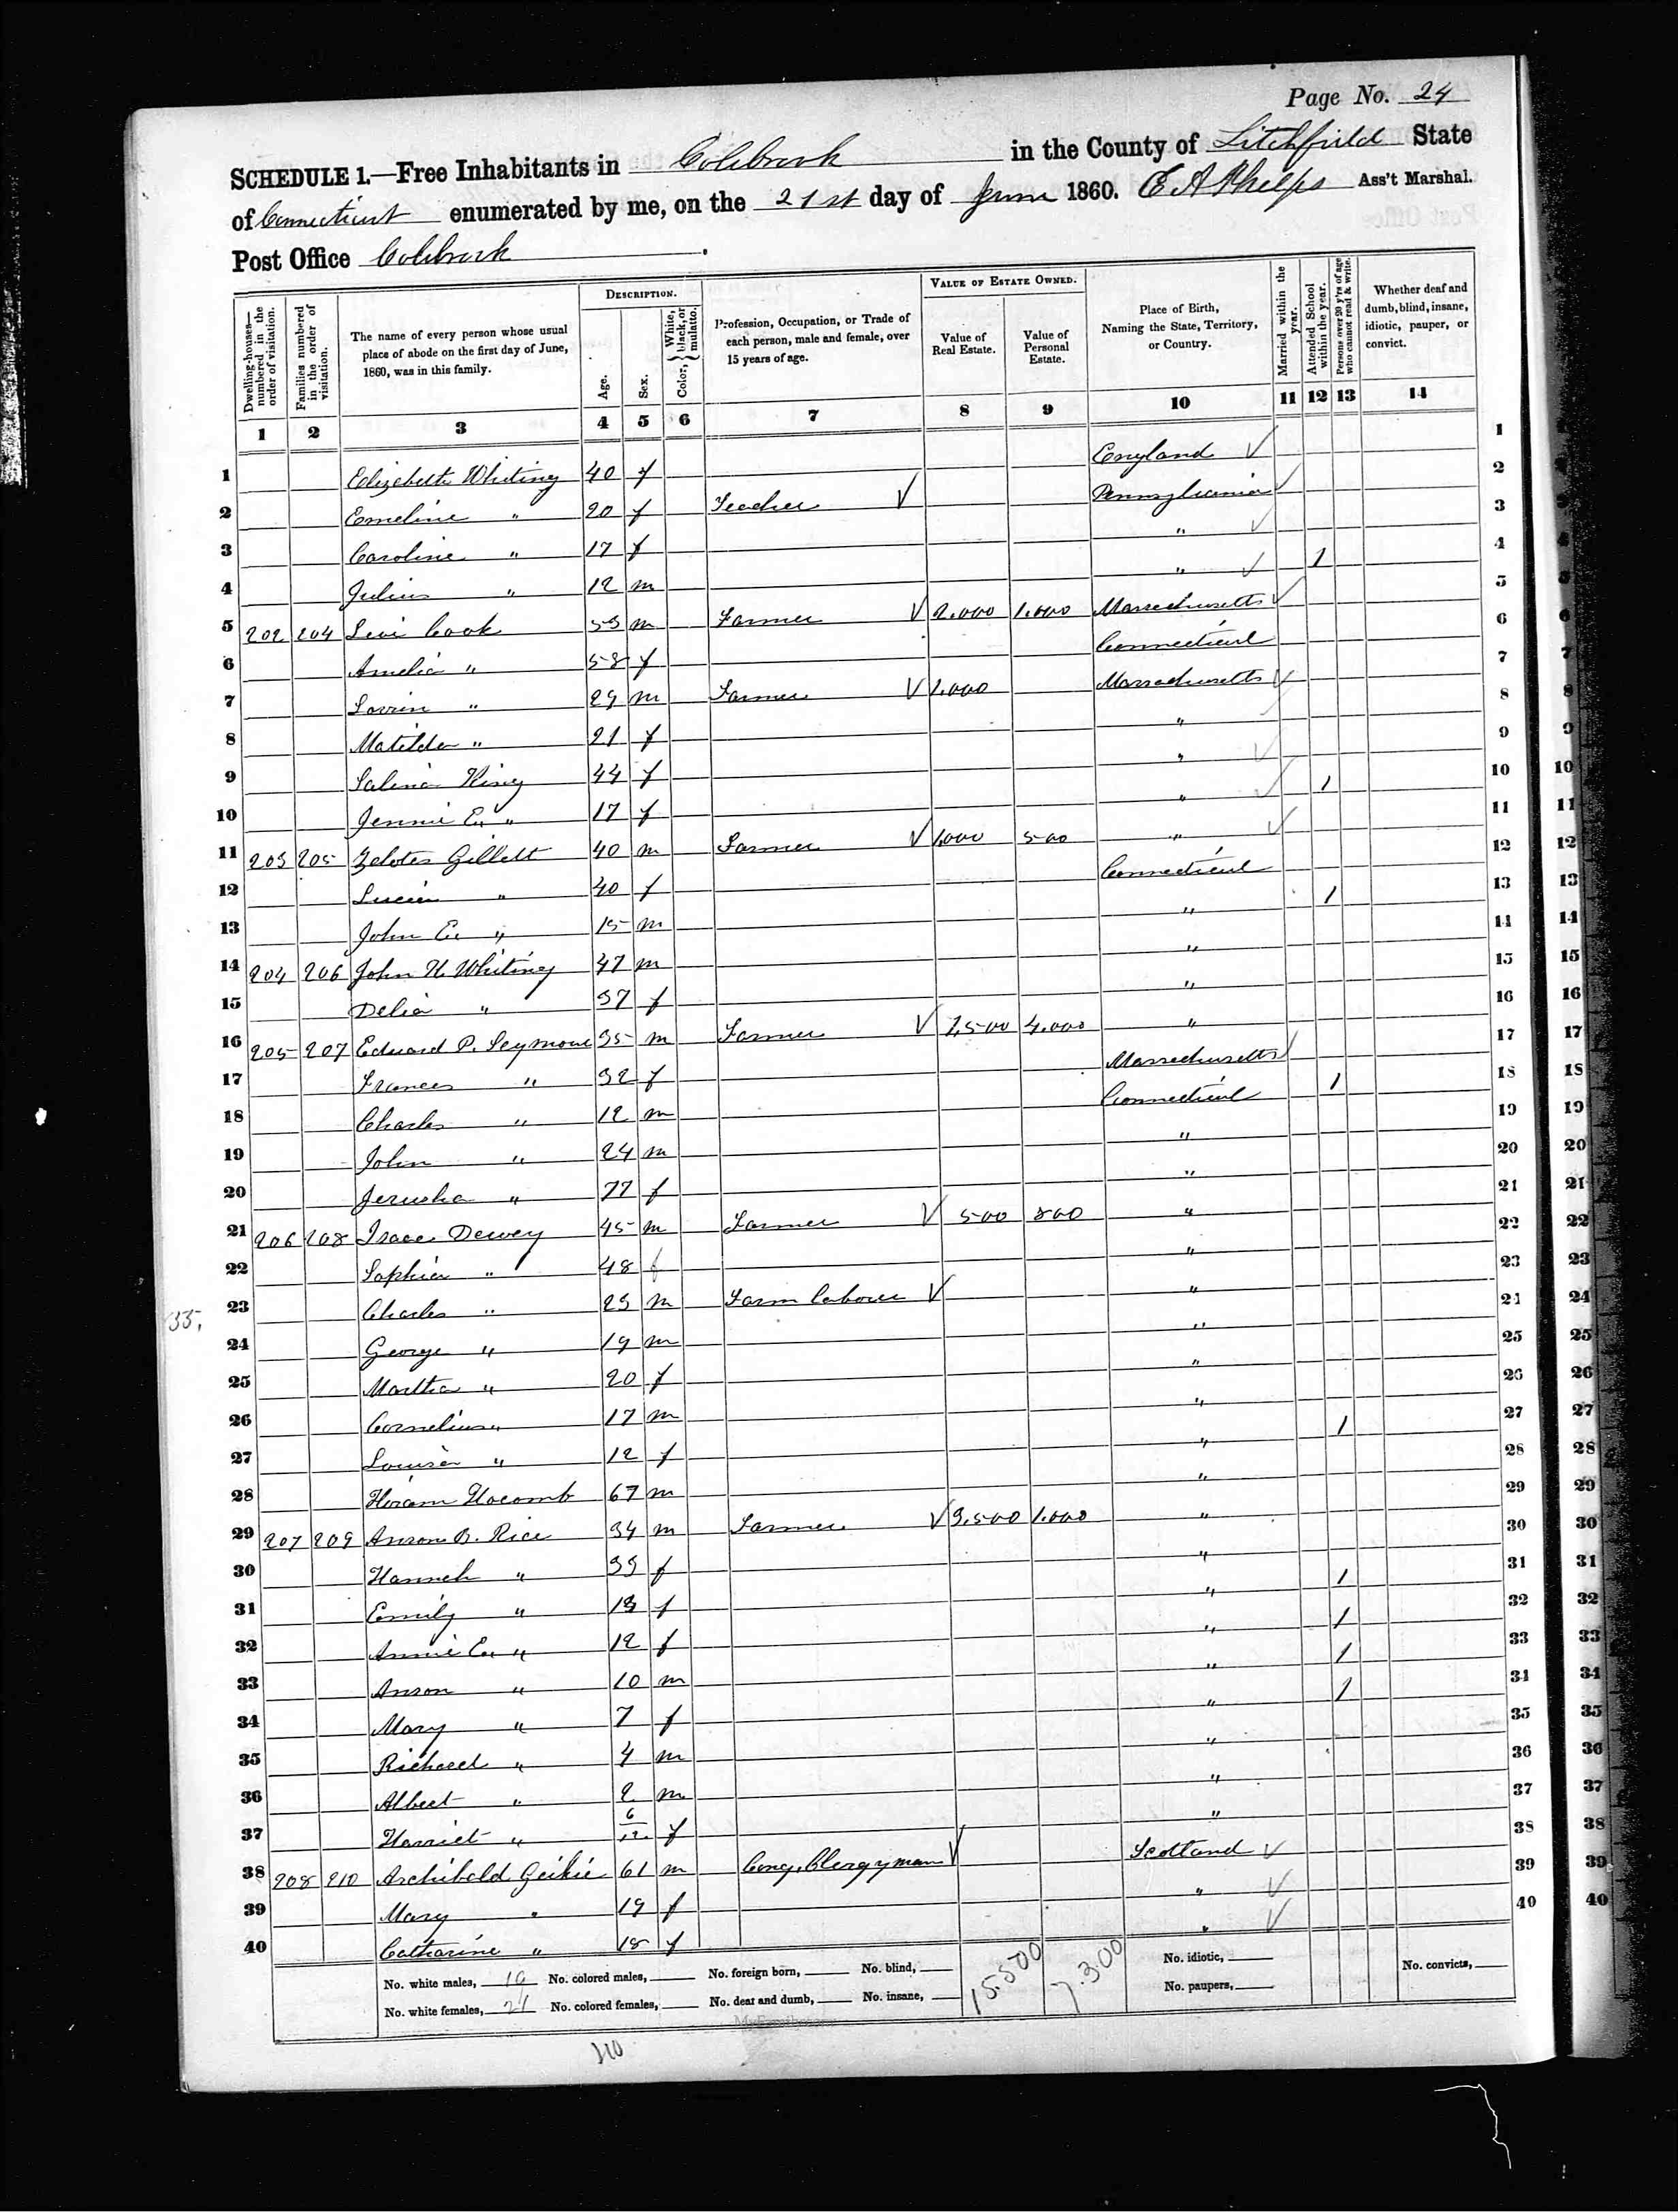 Page No. 24
SCHEDULE 1.—Free Inhabitants in Colebrook in the County of Litchfield State
of Connecticut enumerated by me, on the 21st day of June 1860. E A Phelps Ass't Marshal.
Post Office Colebrook.
Dwelling-houses—numbered in the order of visitation.
Families numbered in the order of visitation.
The name of every person whose usual place of abode on the first day of June, 1860, was in this family.
DESCRIPTION.
Age.
Sex.
Color, { White, black, or mulatto.
Profession, Occupation, or Trade of each person, male and female, over 15 years of age.
VALUE OF ESTATE OWNED.
Value of Real Estate.
Value of Personal Estate.
Place of Birth, Naming the State, Territory, or Country.
Married within the year.
Attended School within the year.
Persons over 20 y'rs of age who cannot read & write.
Whether deaf and dumb, blind, insane, idiotic, pauper, or convict.
1 2 3 4 5 6 7 8 9 10 11 12 13 14
1 Elizabeth Whiting 40 f England ✓ 1
2 Emeline " 20 f Teacher ✓ Pennsylvania ✓ 2
3 Caroline " 17 f " ✓ 3
4 Julius " 12 m " ✓ 1 4
5 202 204 Levi Cook 55 m Farmer ✓ 2,000 1,000 Massachusetts ✓ 5
6 Amelia " 58 f Connecticut 6
7 Lorrin " 29 m Farmer ✓ 1,000 Massachusetts ✓ 7
8 Matilda " 21 f " 8
9 Salina King 44 f " ✓ 9
10 Jennie E. " 17 f " ✓ 1 10
11 203 205 Zelotes Gillett 40 m Farmer ✓ 1,000 500 " ✓ 11
12 Lucia " 40 f Connecticut 12
13 John E. " 15 m " 1 13
14 204 206 John N Whiting 47 m " 14
15 Delia " 37 f " 15
16 205 207 Edward P. Seymour 35 m Farmer ✓ 7,500 4,000 " 16
17 Frances " 32 f Massachusetts ✓ 17
18 Charles " 12 m Connecticut 1 18
19 John " 24 m " 19
20 Jerusha " 77 f " 20
21 206 208 Isaac Dewey 45 m Farmer ✓ 500 800 " 21
22 Sophia " 48 f " 22
23 Charles " 23 m Farm laborer ✓ " 23
24 George " 19 m " 24
25 Martha " 20 f " 25
26 Cornelius " 17 m " 26
27 Louisa " 12 f " 1 27
28 Hiram Hocomb 67 m " 28
29 207 209 Anson B. Rice 34 m Farmer ✓ 3,500 1,000 " 29
30 Hannah " 33 f " 30
31 Emily " 13 f " 1 31
32 Annie E. " 12 f " 1 32
33 Anson " 10 m " 1 33
34 Mary " 7 f " 1 34
35 Richard " 4 m " 35
36 Albert " 2 m " 36
37 Harriet " 6/12 f " 37
38 208 210 Archibald Geikie 61 m Cong. Clergyman ✓ Scotland ✓ 38
39 Mary " 19 f " ✓ 39
40 Catharine " 18 f " ✓ 40
No. white males, 19 No. colored males, No. foreign born, No. blind, 15.500 7.300 No. idiotic, No. convicts,
No. white females, 21 No. colored females, No. deaf and dumb, No. insane, No. paupers,